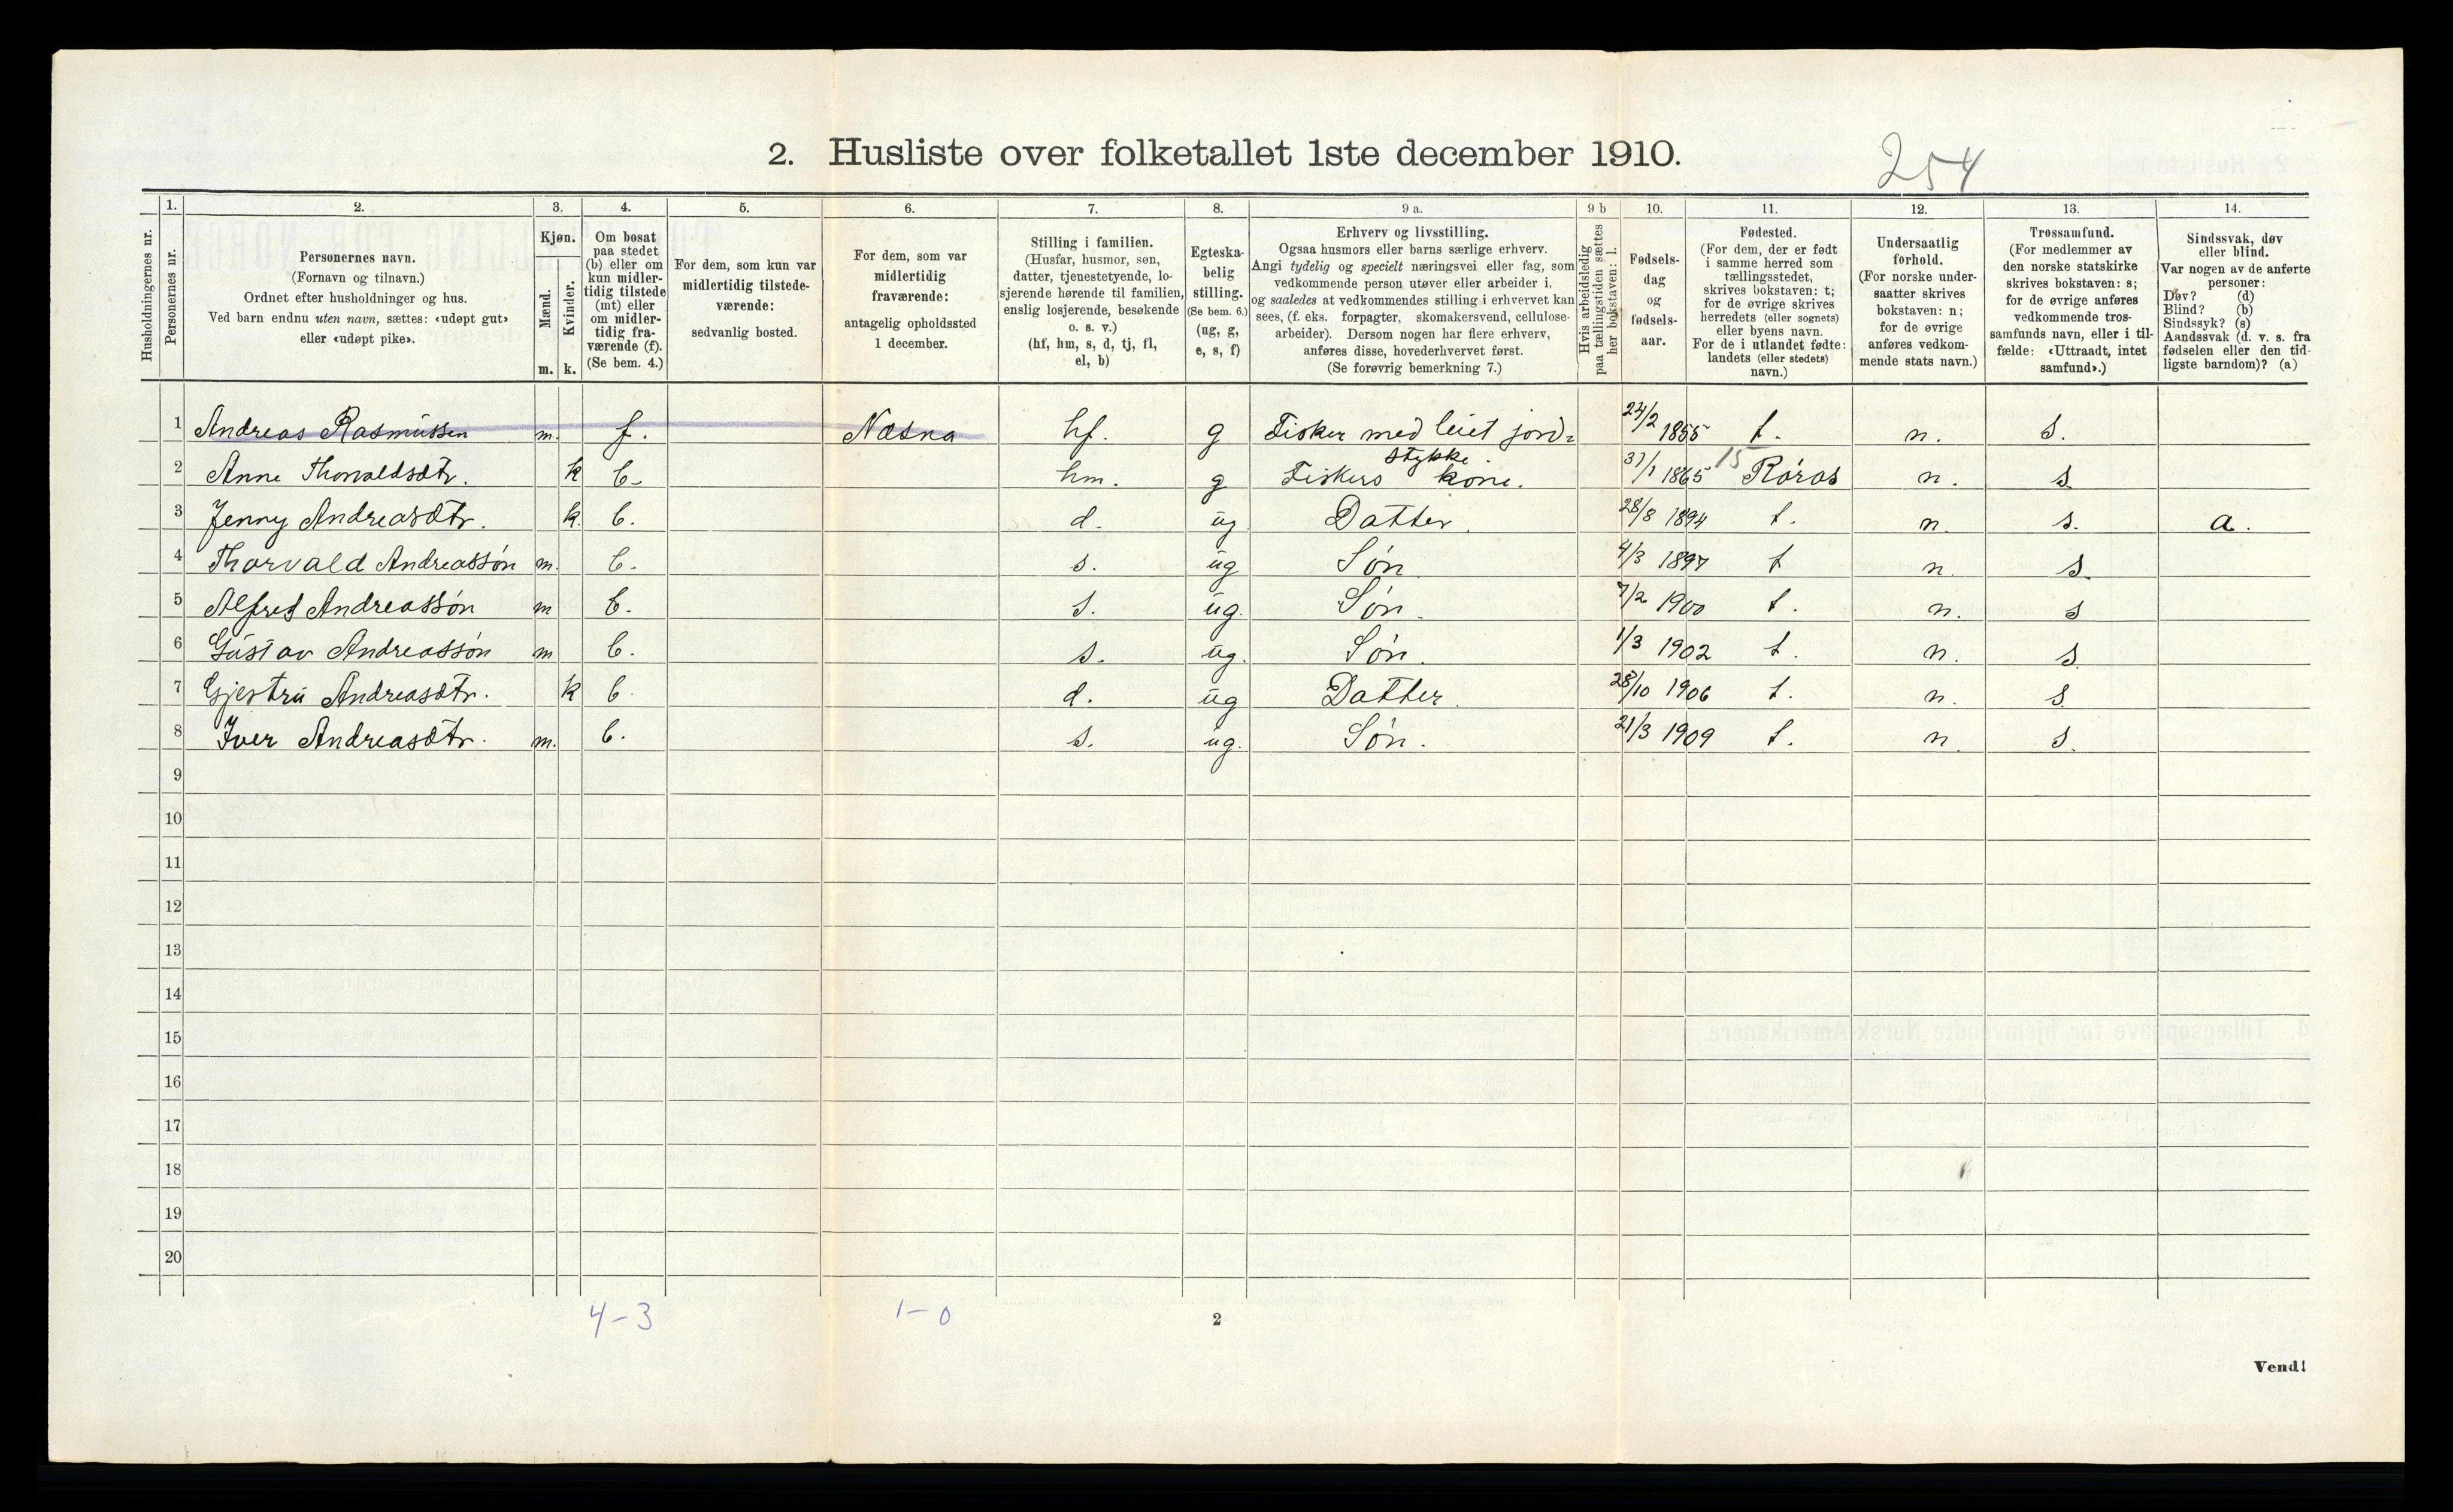 2. Husliste over folketallet 1ste december 1910.
254
1. 2. 3. 4. 5. 6. 7. 8. 9 a. 9 b 10. 11. 12. 13. 14.
Husholdningernes nr.
Personernes nr.
Personernes navn.
(Fornavn og tilnavn.)
Ordnet efter husholdninger og hus.
Ved barn endnu uten navn, sættes: «udøpt gut»
eller «udøpt pike».
Kjøn.
Mænd.
Kvinder.
m. k.
Om bosat
paa stedet
(b) eller om
kun midler-
tidig tilstede
(mt) eller
om midler-
tidig fra-
værende (f).
(Se bem. 4.)
For dem, som kun var
midlertidig tilstede-
værende:
sedvanlig bosted.
For dem, som var
midlertidig
fraværende:
antagelig opholdssted
1 december.
Stilling i familien.
(Husfar, husmor, søn,
datter, tjenestetyende, lo-
sjerende hørende til familien,
enslig losjerende, besøkende
o. s. v.)
(hf, hm, s, d, tj, fl,
el, b)
Egteska-
belig
stilling.
(Se bem. 6.)
(ug, g,
e, s, f)
Erhverv og livsstilling.
Ogsaa husmors eller barns særlige erhverv.
Angi tydelig og specielt næringsvei eller fag, som
vedkommende person utøver eller arbeider i,
og saaledes at vedkommendes stilling i erhvervet kan
sees, (f. eks. forpagter, skomakersvend, cellulose-
arbeider). Dersom nogen har flere erhverv,
anføres disse, hovederhvervet først.
(Se forøvrig bemerkning 7.)
Hvis arbeidsledig
paa tællingstiden sættes
her bokstaven: l.
Fødsels-
dag
og
fødsels-
aar.
Fødested.
(For dem, der er født
i samme herred som
tællingsstedet,
skrives bokstaven: t;
for de øvrige skrives
herredets (eller sognets)
eller byens navn.
For de i utlandet fødte:
landets (eller stedets)
navn.)
Undersaatlig
forhold.
(For norske under-
saatter skrives
bokstaven: n;
for de øvrige
anføres vedkom-
mende stats navn.)
Trossamfund.
(For medlemmer av
den norske statskirke
skrives bokstaven: s;
for de øvrige anføres
vedkommende tros-
samfunds navn, eller i til-
fælde: «Uttraadt, intet
samfund».)
Sindssvak, døv
eller blind.
Var nogen av de anførte
personer:
Døv? (d)
Blind? (b)
Sindssyk? (s)
Aandssvak (d. v. s. fra
fødselen eller den tid-
ligste barndom)? (a)
1 Andreas Rasmussen m. f. Næsna hf. g Fisker med leiet jord= 24/2 1855 t. n. s.
stykke. 15
2 Anne Thorvaldsdtr. k b. hm. g Fiskers kone. 31/1 1865 Röros n. s
3 Jenny Andreasdtr. k. b. d. ug Datter. 28/8 1894 t. n. s. a.
4 Thorvald Andreassøn m. b. s. ug Søn 4/3 1897 t n. s.
5 Alfred Andreassøn m b. s. ug. Søn. 7/2 1900 t. n. s
6 Gustav Andreassøn m b. s. ug. Søn. 1/3 1902 t. n. s
7 Gjertru Andreasdtr. k b. d. ug Datter. 28/10 1906 t. n. s.
8 Iver Andreasdtr. m. b. s. ug. Søn. 21/3 1909 t. n. s.
9
10
11
12
13
14
15
16
17
18
19
20
4-3 1-0
2
Vend!